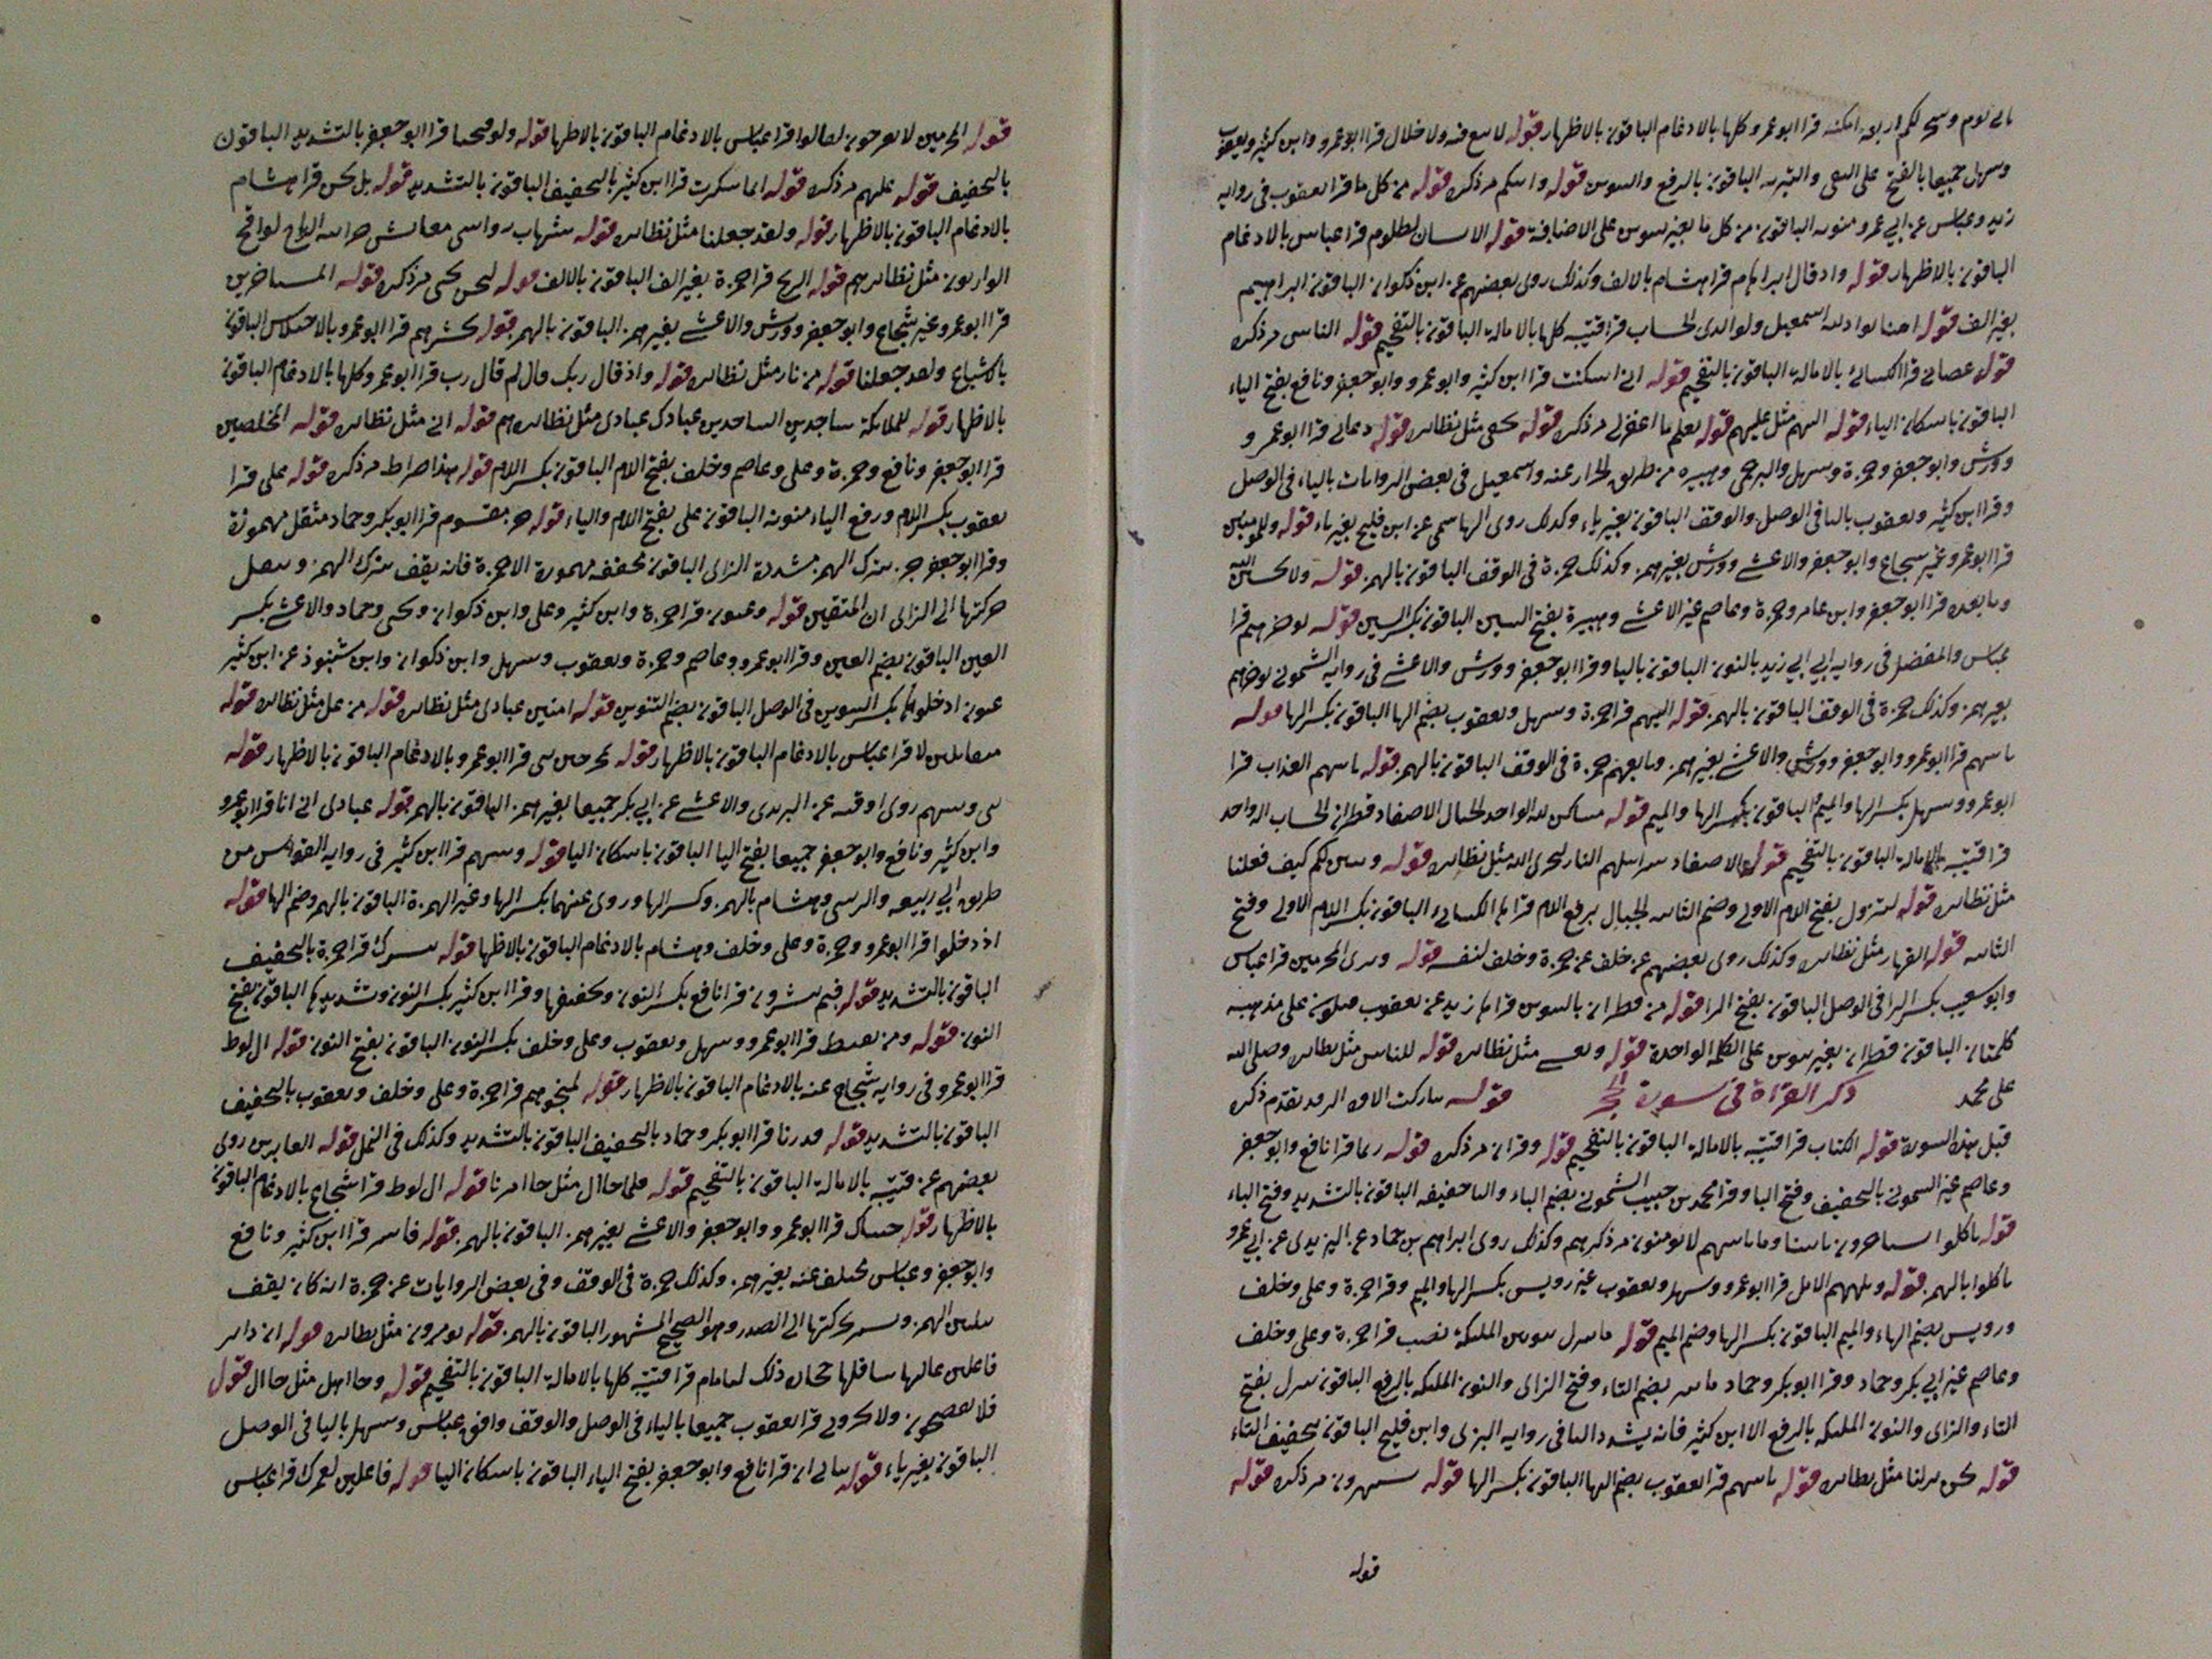 وسخر لكم اربعه امكنه قرا ابو عمرو كلها بالادغام الباقون بالاظهار قوله لا بيع فيه ولا خلال قرا ابو عمرو وابن كثير ويعقوب
وسهل جميعا بالفتح على النفى والتبريه الباقون بالرفع والتنوين قوله واتيكم مر ذكره قوله من كل ما قرا يعقوب فى روايه
زيد وعباس عن ابي عمرو منونه الباقون من كل ما بغير تنوين على الاضافة قوله الانسان لظلوم قرا عباس بالادغام
الباقون بالاظهار قوله واذ قال ابراهام قرا هشام بالالف وكذلك روى بعضهم عن ابن ذكوان الباقون ابراهيم
بغير الف قوله اسمعيل ولوالدى الحساب قرا قتيبه كلها بالاماله الباقون بالتفخيم قوله الناس مر ذكره
قوله عصانى قرا الكسائى بالاماله الباقون بالتفخيم قوله انى اسكنت قرا ابن كثير وابو عمرو وابو جعفر ونافع بفتح الياء
الباقون باسكان الياء قوله اليهم مثل عليهم قوله يعلم ما اغفر لى مر ذكره قوله يخفى مثل نظائره قوله دعائى قرا ابو عمرو و
وورش وابو جعفر وحمزة وسهل والبرجمى وهبيره من طريق الخراز عنه واسمعيل فى بعض الروايات بالياء فى الوصل
وقرا ابن كثير ويعقوب بالياء فى الوصل والوقف الباقون بغير ياء وكذلك روى الهاشمى عن ابن فليح بغير ياء قوله وللمومنين
قرا ابو عمرو غير شجاع وابو جعفر والاعشى وورش بغير همز وكذلك حمزة فى الوقف الباقون بالهمز قوله ولا تحسبن الله
وما بعده قرا ابو جعفر وابن عامر وحمزة وعاصم غير الاعشى وهبيرة بفتح السين الباقون بكسر السين قوله نوخرهم قرا
عباس والمفضل فى روايه ابي زيد بالنون الباقون بالياء وقرا ابو جعفر وورش والاعشى فى روايه الشمونى نوخرهم
بغير همز وكذلك حمزة فى الوقف الباقون بالهمز قوله اليهم قرا حمزة وسهل ويعقوب بضم الها الباقون بكسر الها قوله
ياتيهم قرا ابو عمرو وابو جعفر وورش والاعشى بغير همز وتابعهم حمزة فى الوقف الباقون بالهمز قوله ياتيهم العذاب قرا
ابو عمرو وسهل بكسر الها والميم الباقون بكسر الها والميم قوله مساكن لله الواحد الجبال الاصفاد قطران الحساب الواحد
قرا قتيبه بالاماله الباقون بالتفخيم قوله الاصفاد سرابيلهم النار ليجزى الله مثل نظائره قوله وتبين لكم كيف فعلنا
مثل نظائره قوله لتزول بفتح اللام الاولى وضم الثانيه الجبال برفع اللام قراها الكسائى الباقون بكسر اللام الاولى وفتح
الثانيه قوله القهار مثل نظائره وكذلك روى بعضهم عن خلف عن حمزة وخلف لنفسه قوله وترى المجرمين قرا عباس
وابو شعيب بكسر الرا فى الوصل الباقون بفتح الرا قوله من قطران بالتنوين قراها زيد عن يعقوب على مذهبه
كلمتان الباقون قطران بغير تنوين على الكلمة الواحدة قوله وتغشى مثل نظائره قوله للناس مثل نظائره وصلى الله
على محمد ذكر القراة فى سورة الحجر قوله تباركت الاوه الر قد تقدم ذكره
قبل هذه السورة قوله الكتاب قرا قتيبه بالاماله الباقون بالتفخيم قوله وقران مر ذكره قوله ربما قرا نافع وابو جعفر
وعاصم غير الشمونى بالتخفيف وفتح البا وقرا محمد بن حبيب الشمونى بضم الباء والبا خفيفه الباقون بالتشديد وفتح الباء
قوله ياكلوا يستاخرون تاتينا وما ياتيهم لا يومنون مر ذكرهم وكذلك روى ابراهيم بن حماد عن اليزيدى عن ابي عمرو
ياكلوا بالهمز قوله ويلههم الامل قرا ابو عمرو وسهل ويعقوب غير رويس بكسر الها والميم وقرا حمزة وعلى وخلف
ورويس بضم الهاء والميم الباقون بكسر الها وضم الميم قوله ما ننزل بنونين الملئكة نصب قرا حمزة وعلى وخلف
وعاصم غير ابي بكر وحماد وقرا ابو بكر وحماد ما تنزل بضم التاء وفتح الزاى والنون الملئكه بالرفع الباقون تنزل بفتح
التاء والزاى والنون الملئكه بالرفع الا ابن كثير فانه يشدد التا فى روايه البزى وابن فليح الباقون بتخفيف التاء
قوله نحن نزلنا مثل نظائره قوله ياتيهم قرا يعقوب بضم الها الباقون بكسر الها قوله يستهزون مر ذكره قوله
قوله
قوله المجرمين لا يعرجون لقالوا قرا عباس بالادغام الباقون بالاظهار قوله ولو فتحنا قرا ابو جعفر بالتشديد الباقون
بالتخفيف قوله عليهم مر ذكره قوله انما سكرت قرا ابن كثير بالتخفيف الباقون بالتشديد قوله بل نحن قرا هشام
بالادغام الباقون بالاظهار قوله ولقد جعلنا مثل نظائره قوله شهاب رواسى معايش خزائنه الرياح لواقح
الوارثون مثل نظائرهم قوله الريح قرا حمزة بغير الف الباقون بالالف قوله لنحن نحى مر ذكره قوله المستاخرين
قرا ابو عمرو غير شجاع وابو جعفر وورش والاعشى بغير همز الباقون بالهمز قوله يحشرهم قرا ابو عمرو بالاختلاس الباقون
بالاشباع ولقد جعلنا قوله من نار مثل نظائره قوله واذ قال ربك قال لم قال رب قرا ابو عمرو كلها بالادغام الباقون
بالاظهار قوله للملائكة ساجدين الساجدين عبادك عبادى مثل نظائرهم قوله انى مثل نظائره قوله المخلصين
قرا ابو جعفر ونافع وحمزة وعلى وعاصم وخلف بفتح اللام الباقون بكسر اللام قوله هذا صراط مر ذكره قوله على قرا
يعقوب بكسر اللام ورفع الياء منونه الباقون على بفتح اللام والياء قوله جز مقسوم قرا ابو بكر وحماد مثقل مهموزة
وقرا ابو جعفر جز بترك الهمز مشددة الزاى الباقون مخففه مهموزة الا حمزة فانه يقف بترك الهمز وينقل
حركتها الى الزاى ان المتقين قوله وعيون قرا حمزة وابن كثير وعلى وابن ذكوان ويحيى وحماد والاعشى بكسر
العين الباقون بضم العين وقرا ابو عمرو وعاصم وحمزة ويعقوب وسهل وابن ذكوان وابن شنبوذ عن ابن كثير
عيون ادخلوها بكسر التنوين فى الوصل الباقون بضم التنوين قوله امنين عبادى مثل نظائره قوله من غل مثل نظائره قوله
متقابلين لا قرا عباس بالادغام الباقون بالاظهار قوله قرا ابو عمرو بالادغام الباقون بالاظهار قوله
نبى ونبيهم روى اوقيه عن اليزيدى والاعشى عن ابي بكر جميعا بغير همز الباقون بالهمز قوله عبادى انى انا قرا ابو عمرو
وابن كثير ونافع وابو جعفر جميعا بفتح اليا الباقون باسكان اليا قوله ونبيهم قرا ابن كثير فى روايه القواس من
طريق ابي ربيعه والزينبى وهشام بالهمز وكسر الها وروى عنهما بكسر الها وغير الهمزة الباقون بالهمز وضم الها قوله
اذ دخلوا قرا ابو عمرو وحمزة وعلى وخلف وهشام بالادغام الباقون بالاظهار قوله نبشرك قرا حمزة بالتخفيف
الباقون بالتشديد قوله فبم تبشرون قرا نافع بكسر النون وتخفيفها وقرا ابن كثير بكسر النون وتشديدها الباقون بفتح
النون قوله ومن يقنط قرا ابو عمرو وسهل ويعقوب وعلى وخلف بكسر النون الباقون بفتح النون قوله ال لوط
قرا ابو عمرو فى روايه شجاع عنه بالادغام الباقون بالاظهار قوله لمنجوهم قرا حمزة وعلى وخلف ويعقوب بالتخفيف
الباقون بالتشديد قوله قدرنا قرا ابو بكر وحماد بالتخفيف الباقون بالتشديد وكذلك فى النمل قوله الغابرين روى
بعضهم عن قتيبه بالاماله الباقون بالتفخيم قوله فلما جا ال مثل جا امرنا قوله ال لوط قرا شجاع بالادغام الباقون
بالاظهار قوله جيناك قرا ابو عمرو وابو جعفر والاعشى بغير همز الباقون بالهمز قوله فاسر قرا ابن كثير ونافع
وابو جعفر وعباس مختلف عنه بغير همز وكذلك حمزة فى الوقف وفى بعض الروايات عن حمزة انه كان يقف
بتليين الهمز ويسير بحركتها الى الصدر وهو الصحيح المشهور الباقون بالهمز قوله يومرون مثل نظائره قوله ان دابر
فاعلين عاليها سافلها حجاره ذلك لبامام قرا قتيبه كلها بالاماله الباقون بالتفخيم قوله وجا اهل مثل جا ال قوله
فلا تفضحون ولا تخزون قرا يعقوب جميعا بالياء فى الوصل والوقف وافق عباس وسهل باليا فى الوصل
الباقون بغير ياء قوله بناتى ان قرا نافع وابو جعفر بفتح الياء الباقون باسكان اليا قوله فاعلين لعمرك قرا عباس